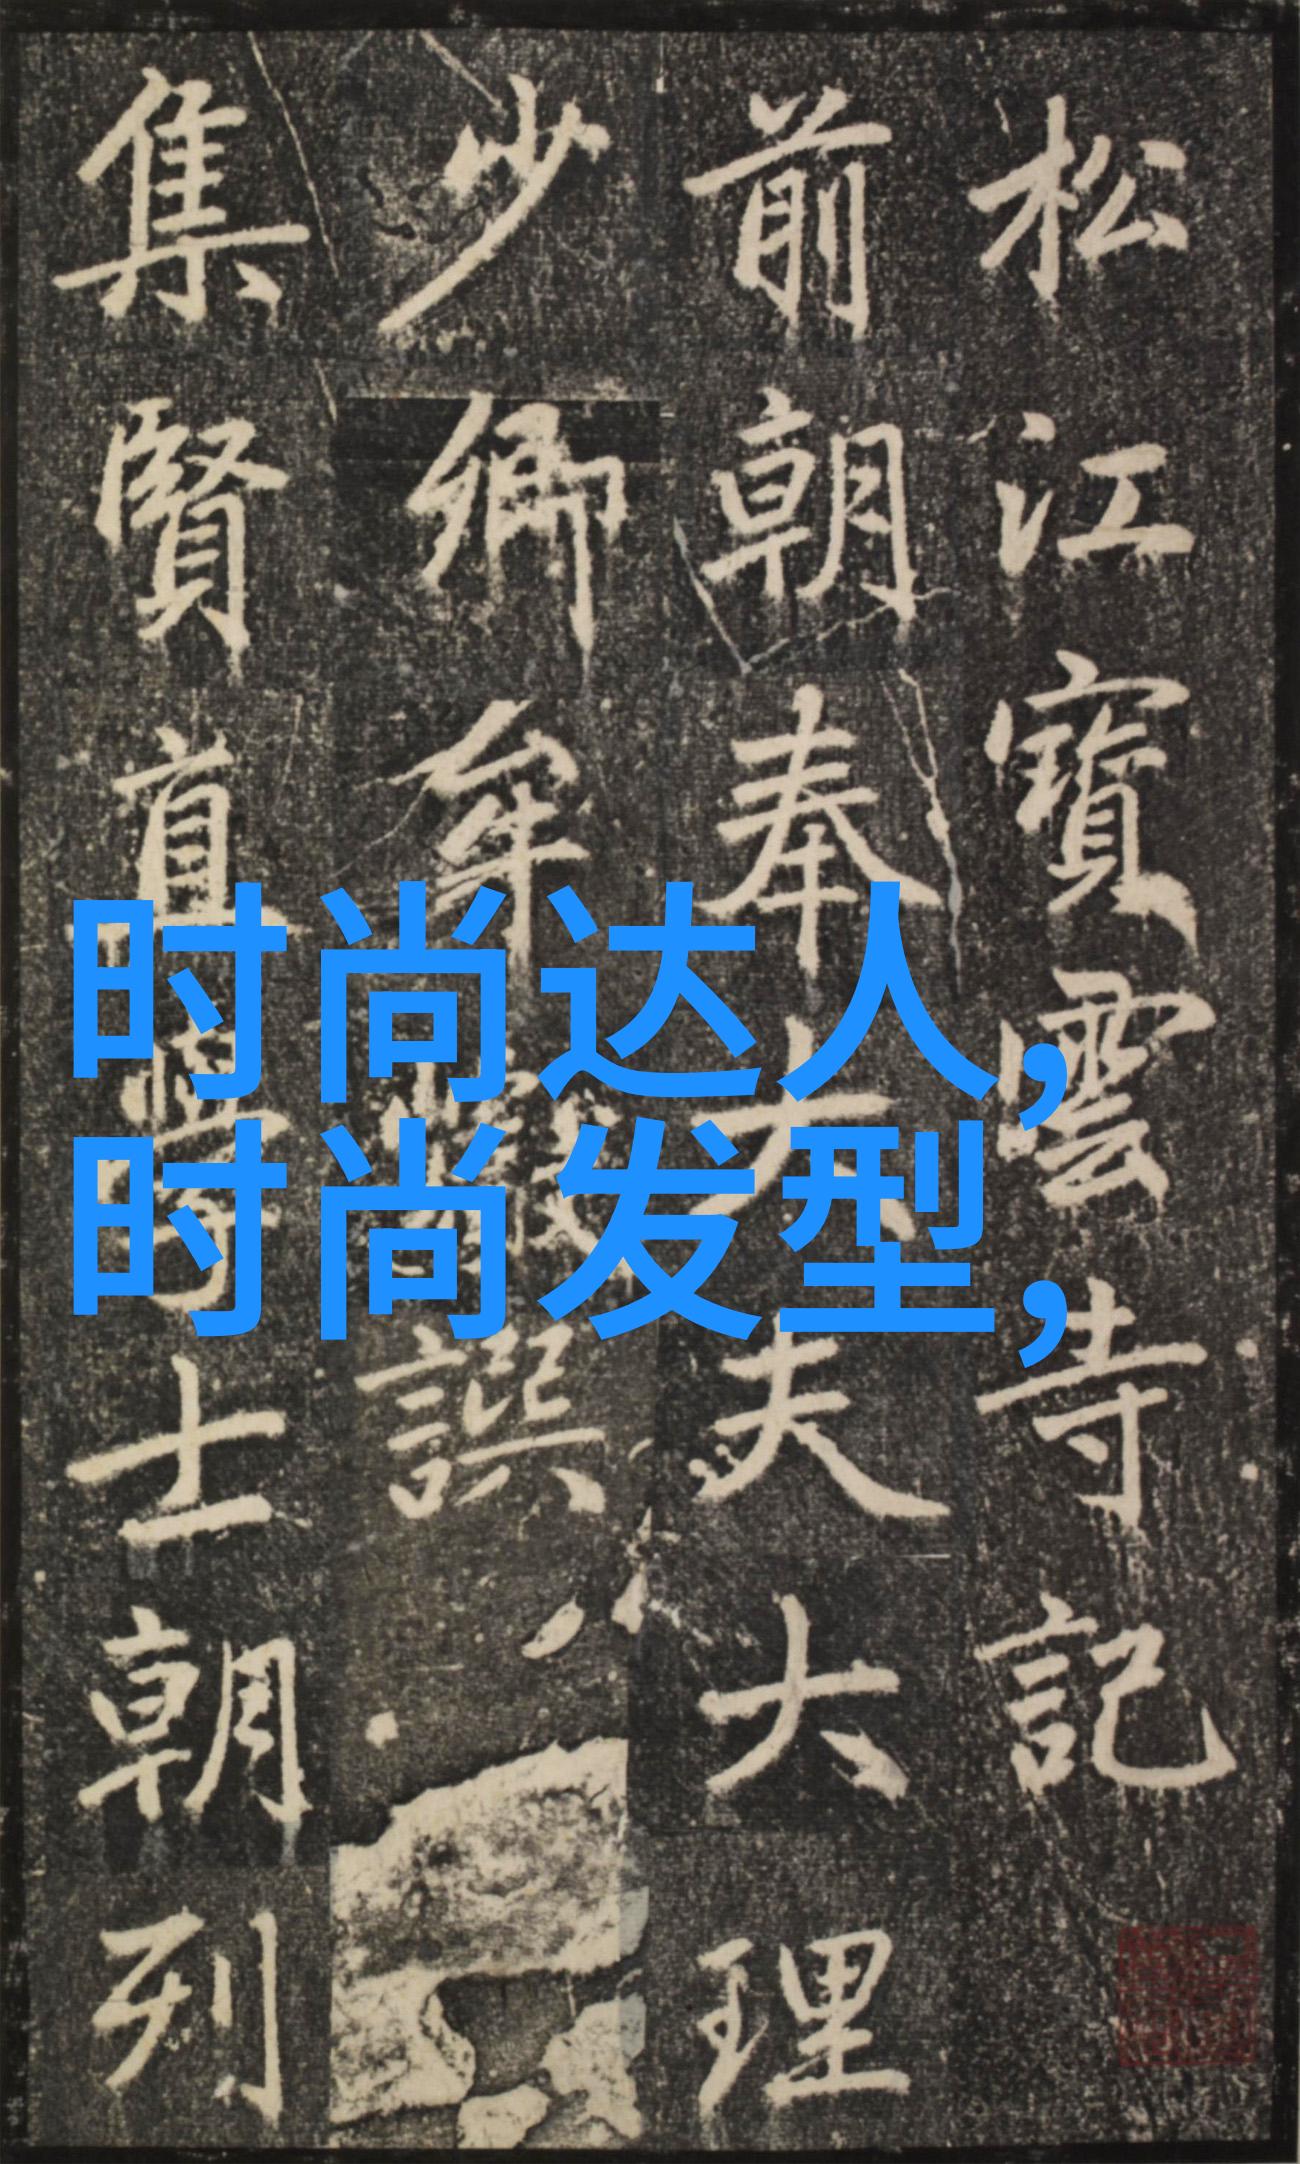 松江寶雲寺記
前朝奉大夫大理
少卿牟譔
集賢直學士朝列
时尚达人,
时尚发型,